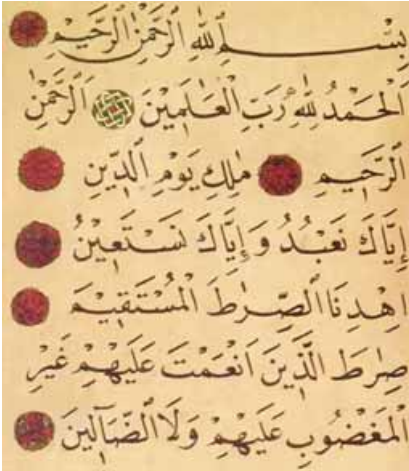 بِسْــــمِ ٱللهِ ٱلرَّحْمٰنِ ٱلرَّحِيمِ
اَلْحَمْدُ لِلّٰهِ رَبِّ الْعَالَمِينَ اَلرَّحْمٰنِ
ٱلرَّحِيمِ مٰلِكِ يَوْمِ ٱلدِّينِ
إِيَّاكَ نَعْبُدُ وَ إِيَّاكَ نَسْتَعِينُ
اِهْدِنَا ٱلصِّرٰطَ الْمُسْتَقِيمَ
صِرٰطَ ٱلَّذِينَ اَنْعَمْتَ عَلَيْهِمْ غَيْرِ
الْمَغْضُوبِ عَلَيْهِمْ وَلَا ٱلضَّآلِّينَ